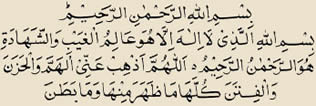 بِسْمِ اللهِ الرَّحْمٰنِ الرَّحِيْمِ
بِسْمِ اللهِ الَّذِىْ لَا اِلٰهَ اِلَّا هُوَ عَالِمُ الْغَيْبِ وَالشَّهَادَةِ
هُوَ الرَّحْمٰنُ الرَّحِيْمُ ۞ اَللّٰهُمَّ اَذْهِبْ عَنِّىْ الْهَمَّ وَالْحَزَنَ
وَالْفِتَنَ كُلَّهَا مَا ظَهَرَ مِنْهَا وَمَا بَطَنَ